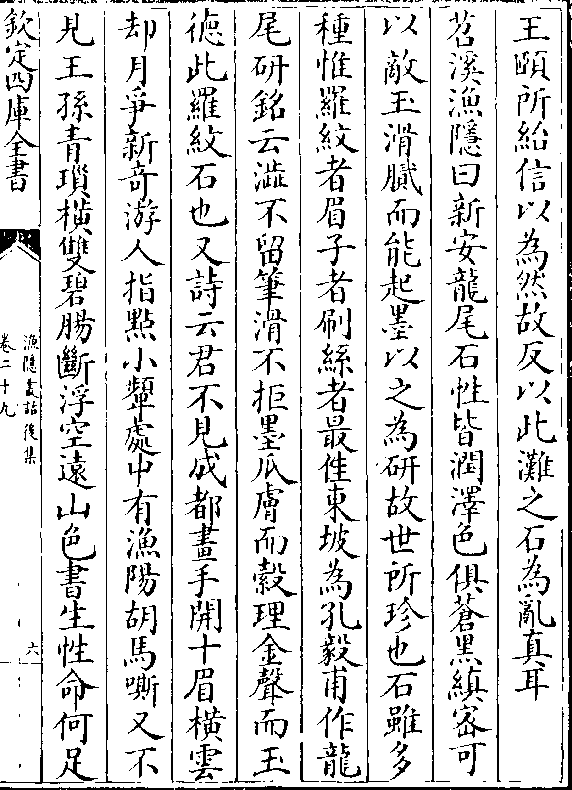 王頤所紿信以為然故反以此灘之石為亂真耳
苕溪漁隱曰新安龍尾石性皆潤澤色俱蒼黑縝宻可
以敵玉滑膩而能起墨以之為研故世所珍也石雖多
種惟羅紋者眉子者刷絲者最佳東坡為孔毅甫作龍
尾研銘云澁不留筆滑不拒墨瓜膚而縠理金聲而玉
徳此羅紋石也又詩云君不見成都畫手開十眉橫雲
却月爭新竒游人指點小顰處中有漁陽胡馬嘶又不
見王孫青瑣橫雙碧腸斷浮空逺山色書生性命何足
欽定四庫全書
漁隱叢話後集
卷二十九
六